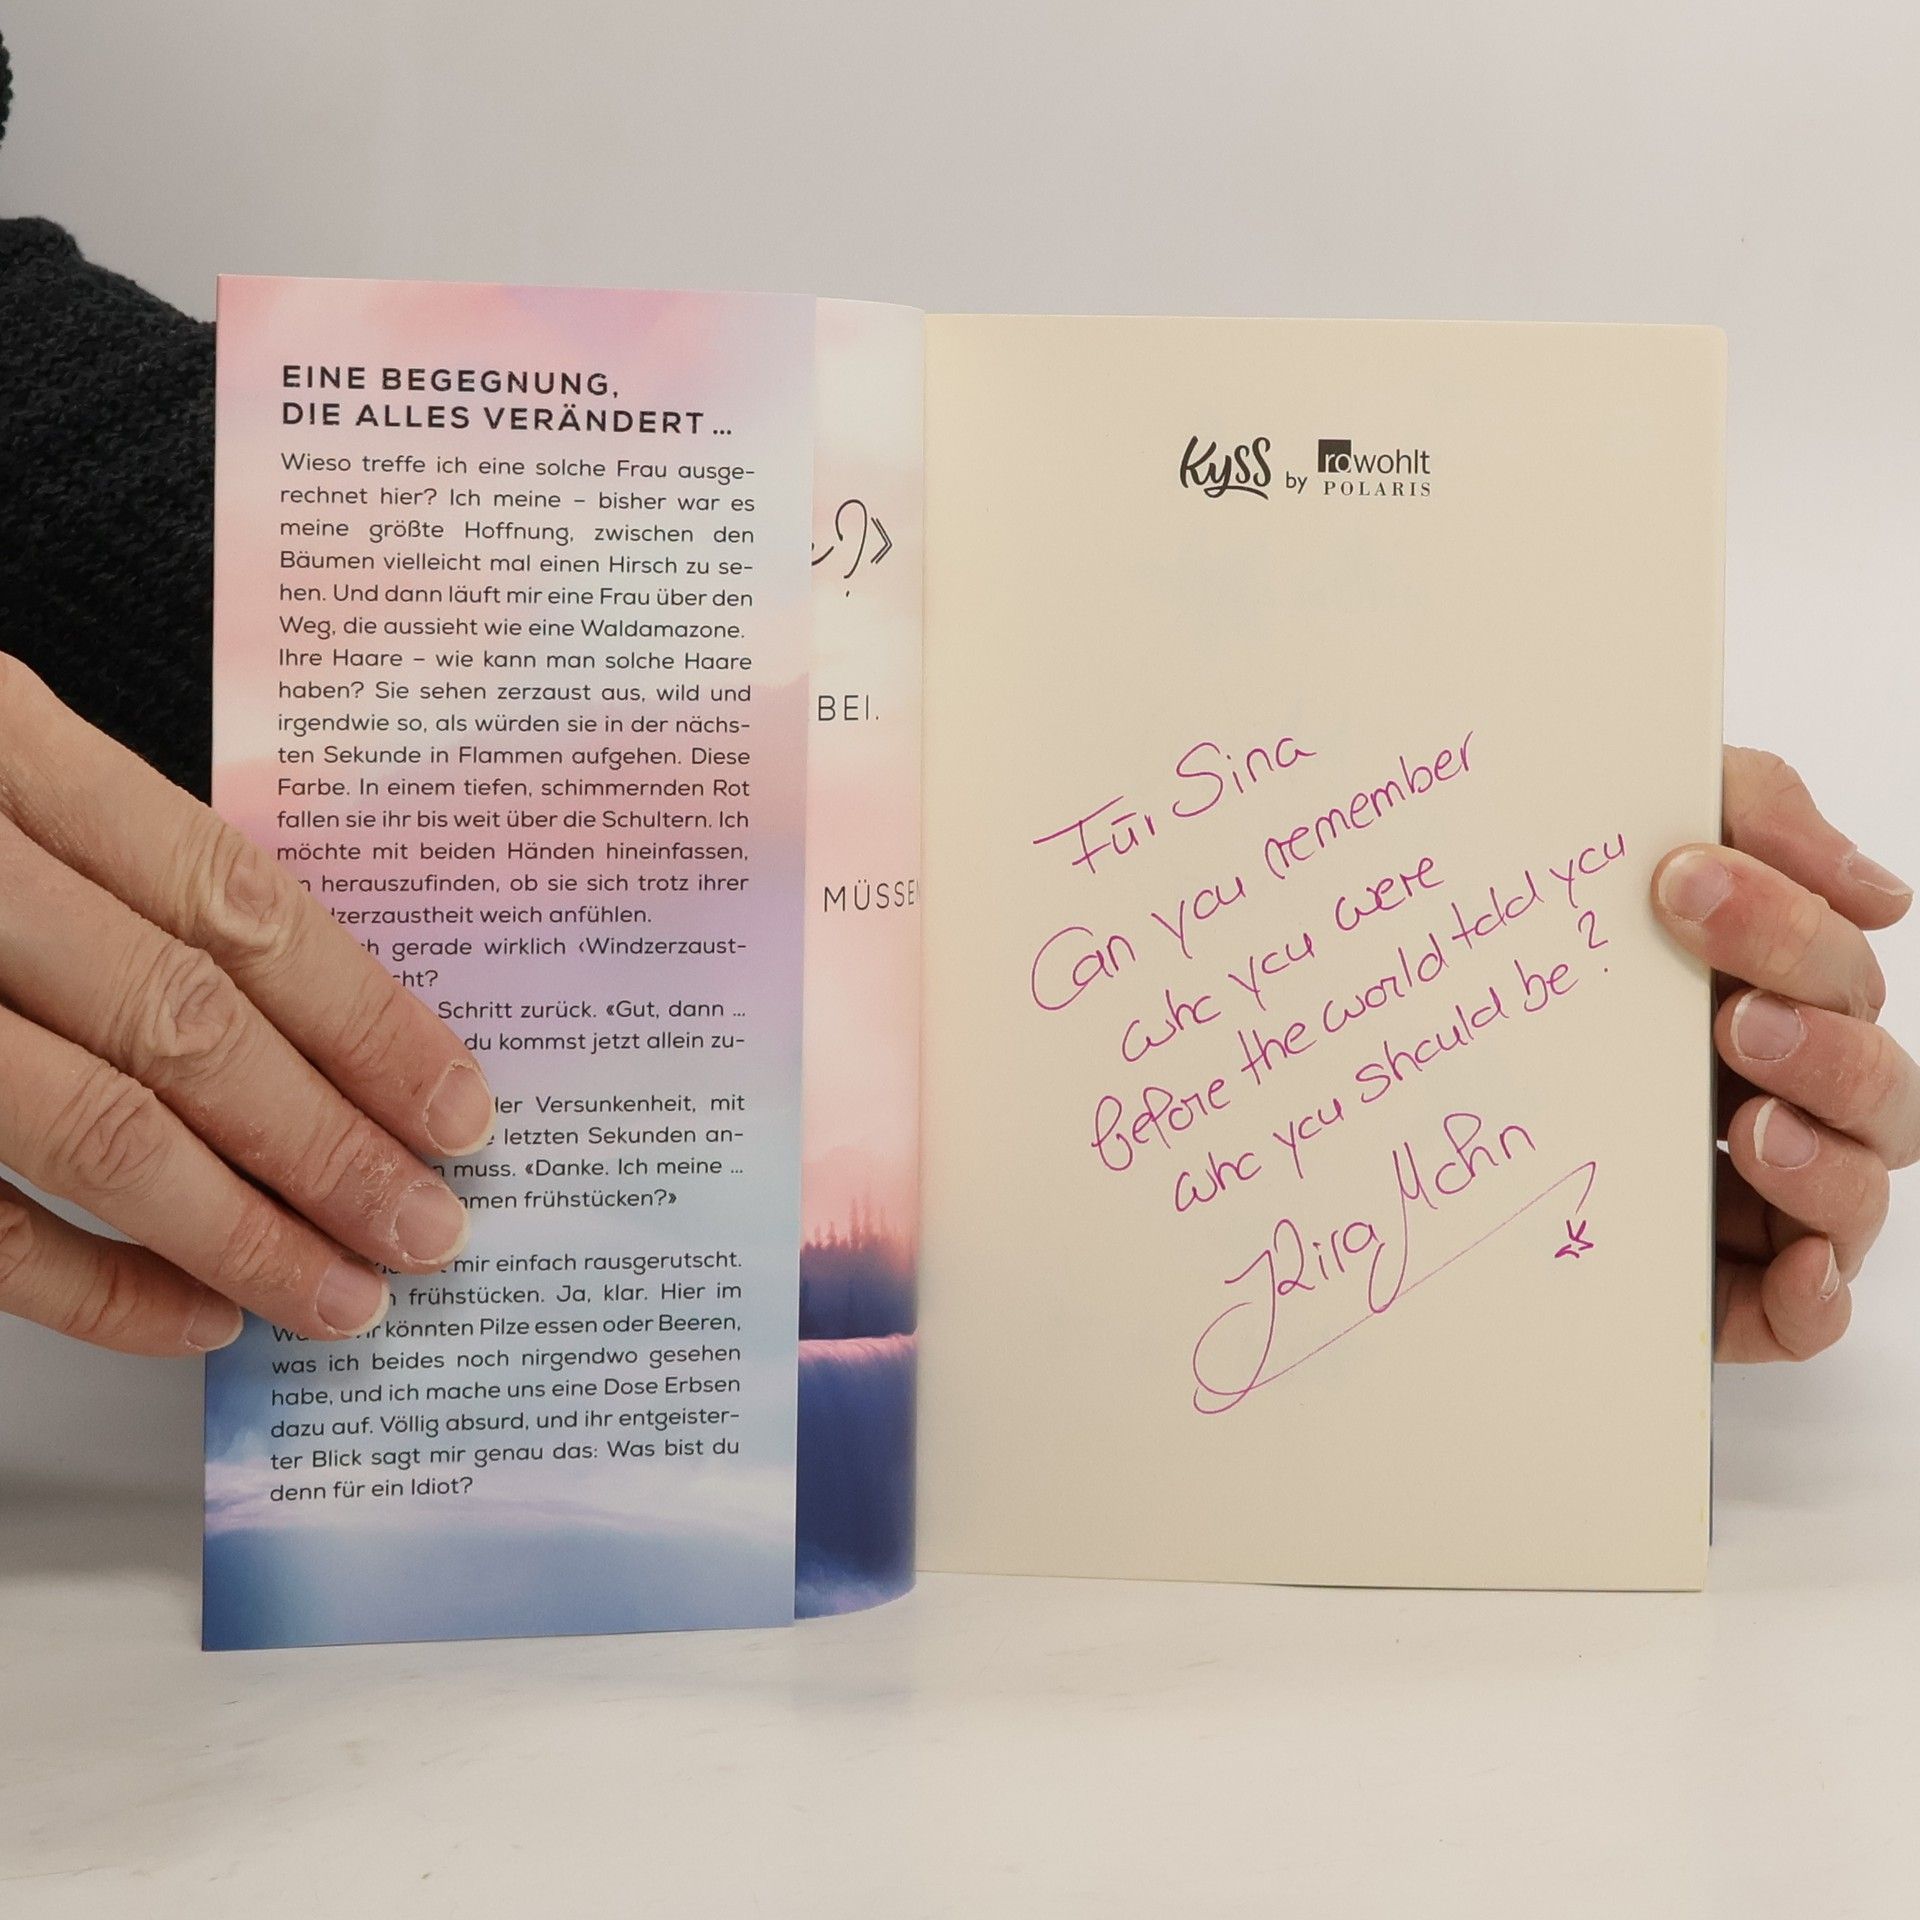 EINE BEGEGNUNG,
DIE ALLES VERÄNDERT ...
Wieso treffe ich eine solche Frau ausge-
rechnet hier? Ich meine – bisher war es
meine größte Hoffnung, zwischen den
Bäumen vielleicht mal einen Hirsch zu se-
hen. Und dann läuft mir eine Frau über den
Weg, die aussieht wie eine Waldamazone.
Ihre Haare – wie kann man solche Haare
haben? Sie sehen zerzaust aus, wild und
irgendwie so, als würden sie in der nächs-
ten Sekunde in Flammen aufgehen. Diese
Farbe. In einem tiefen, schimmernden Rot
fallen sie ihr bis weit über die Schultern. Ich
möchte mit beiden Händen hineinfassen,
herauszufinden, ob sie sich trotz ihrer
dzerzaustheit weich anfühlen.
gerade wirklich ‹Windzerzaust-
cht?
Schritt zurück. «Gut, dann ...
du kommst jetzt allein zu-
der Versunkenheit, mit
letzten Sekunden an-
muss. «Danke. Ich meine ...
mmen frühstücken?»
mir einfach rausgerutscht.
frühstücken. Ja, klar. Hier im
könnten Pilze essen oder Beeren,
was ich beides noch nirgendwo gesehen
habe, und ich mache uns eine Dose Erbsen
dazu auf. Völlig absurd, und ihr entgeister-
ter Blick sagt mir genau das: Was bist du
denn für ein Idiot?
?»
BEI.
MÜSSE
Kyss by rowohlt
POLARIS
Für Sina
Can you remember
who you were
before the world told you
who you should be?
Kira Mohn